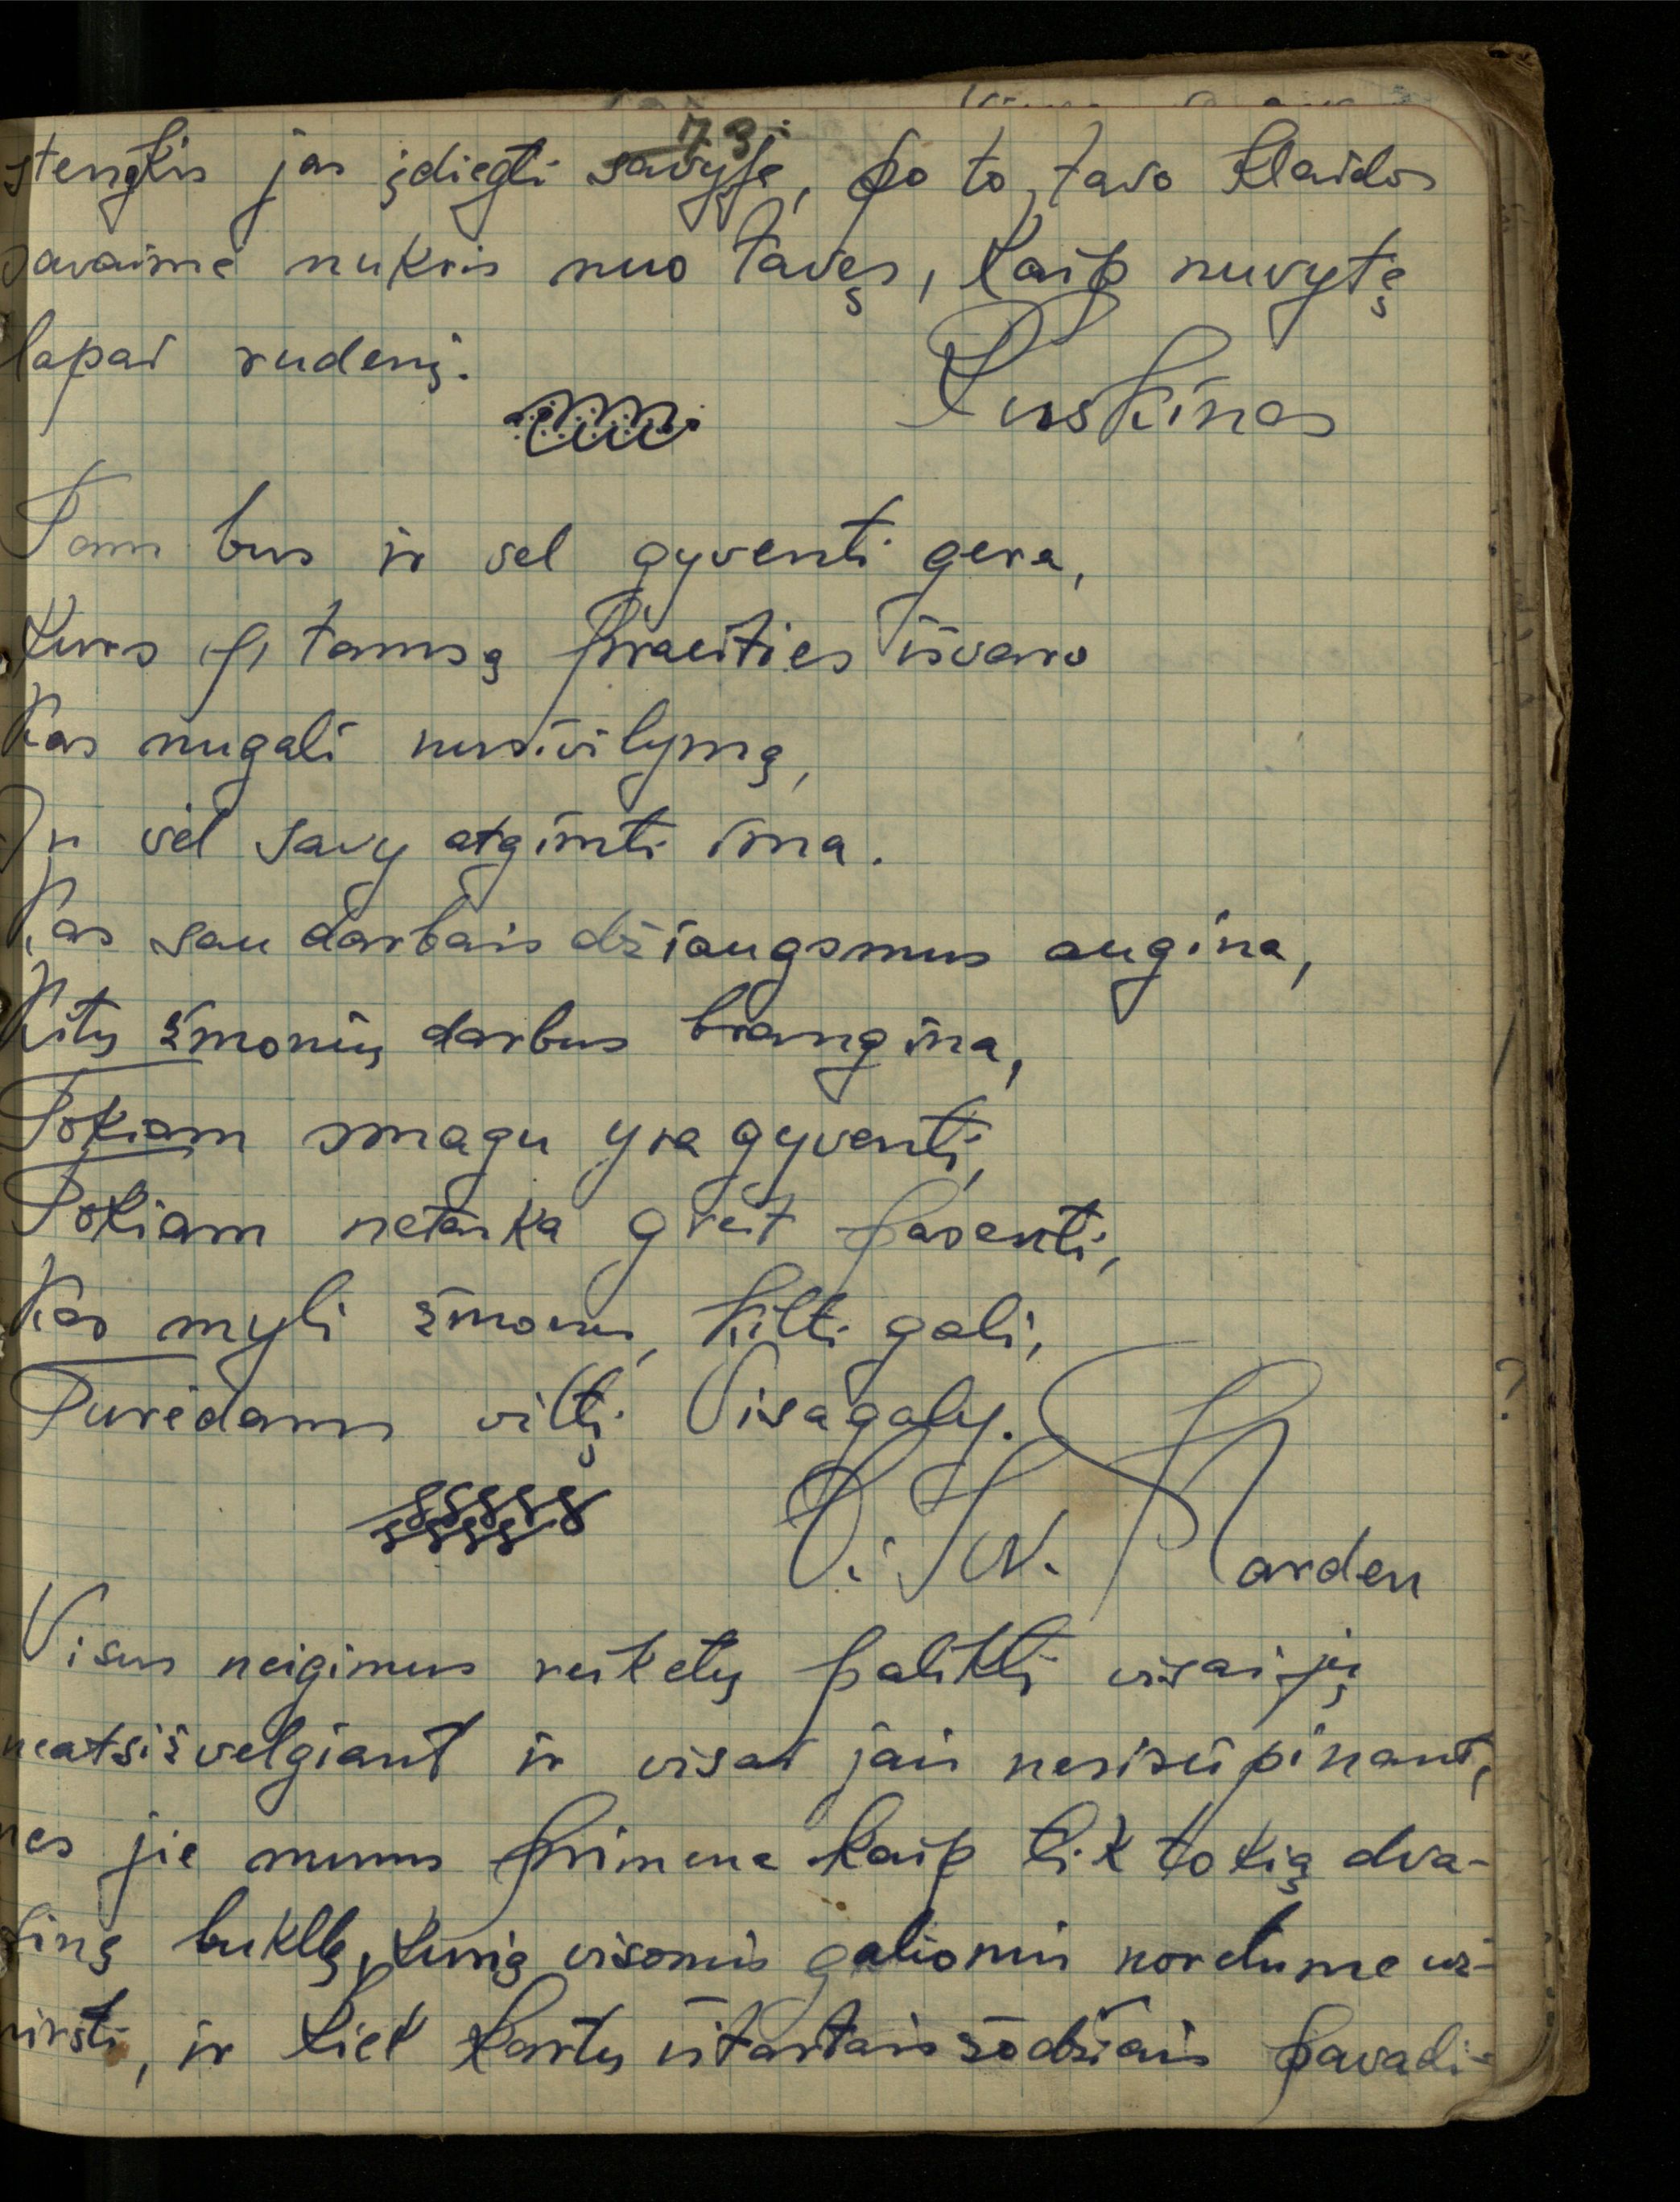 73.
stengkis jas įdiegti savyje, po to, tavo klaidos
savaime nukris nuo tavęs, kaip nuvytę
lapai rudenį.
Puskinas
Tam bus ir vel gyventi gera,
Kurs tamsą praeities išvaro
Kas nugali nusivilymą,
In vėl savy atgimti ima.
Kas sau darbais džiaugsmus augina,
Kitų žmonių darbus brangina,
Tokiam smagu yra gyventi,
Tokiam netenka greit pasenti,
Kas myli žmones, kilti gali,
Turėdams viltį Visagaly.
O. Sw. Marden
Visus neigimus reiketų palikti visai jų
neatsižvelgiant ir visai jais nesisūpinant,
nes jie mums primena kaip tik tokią dva-
sinę buklę, kurią visomis galiomis noretume už-
miršti, ir kiek kartų ištartais žodžiais pavadi-